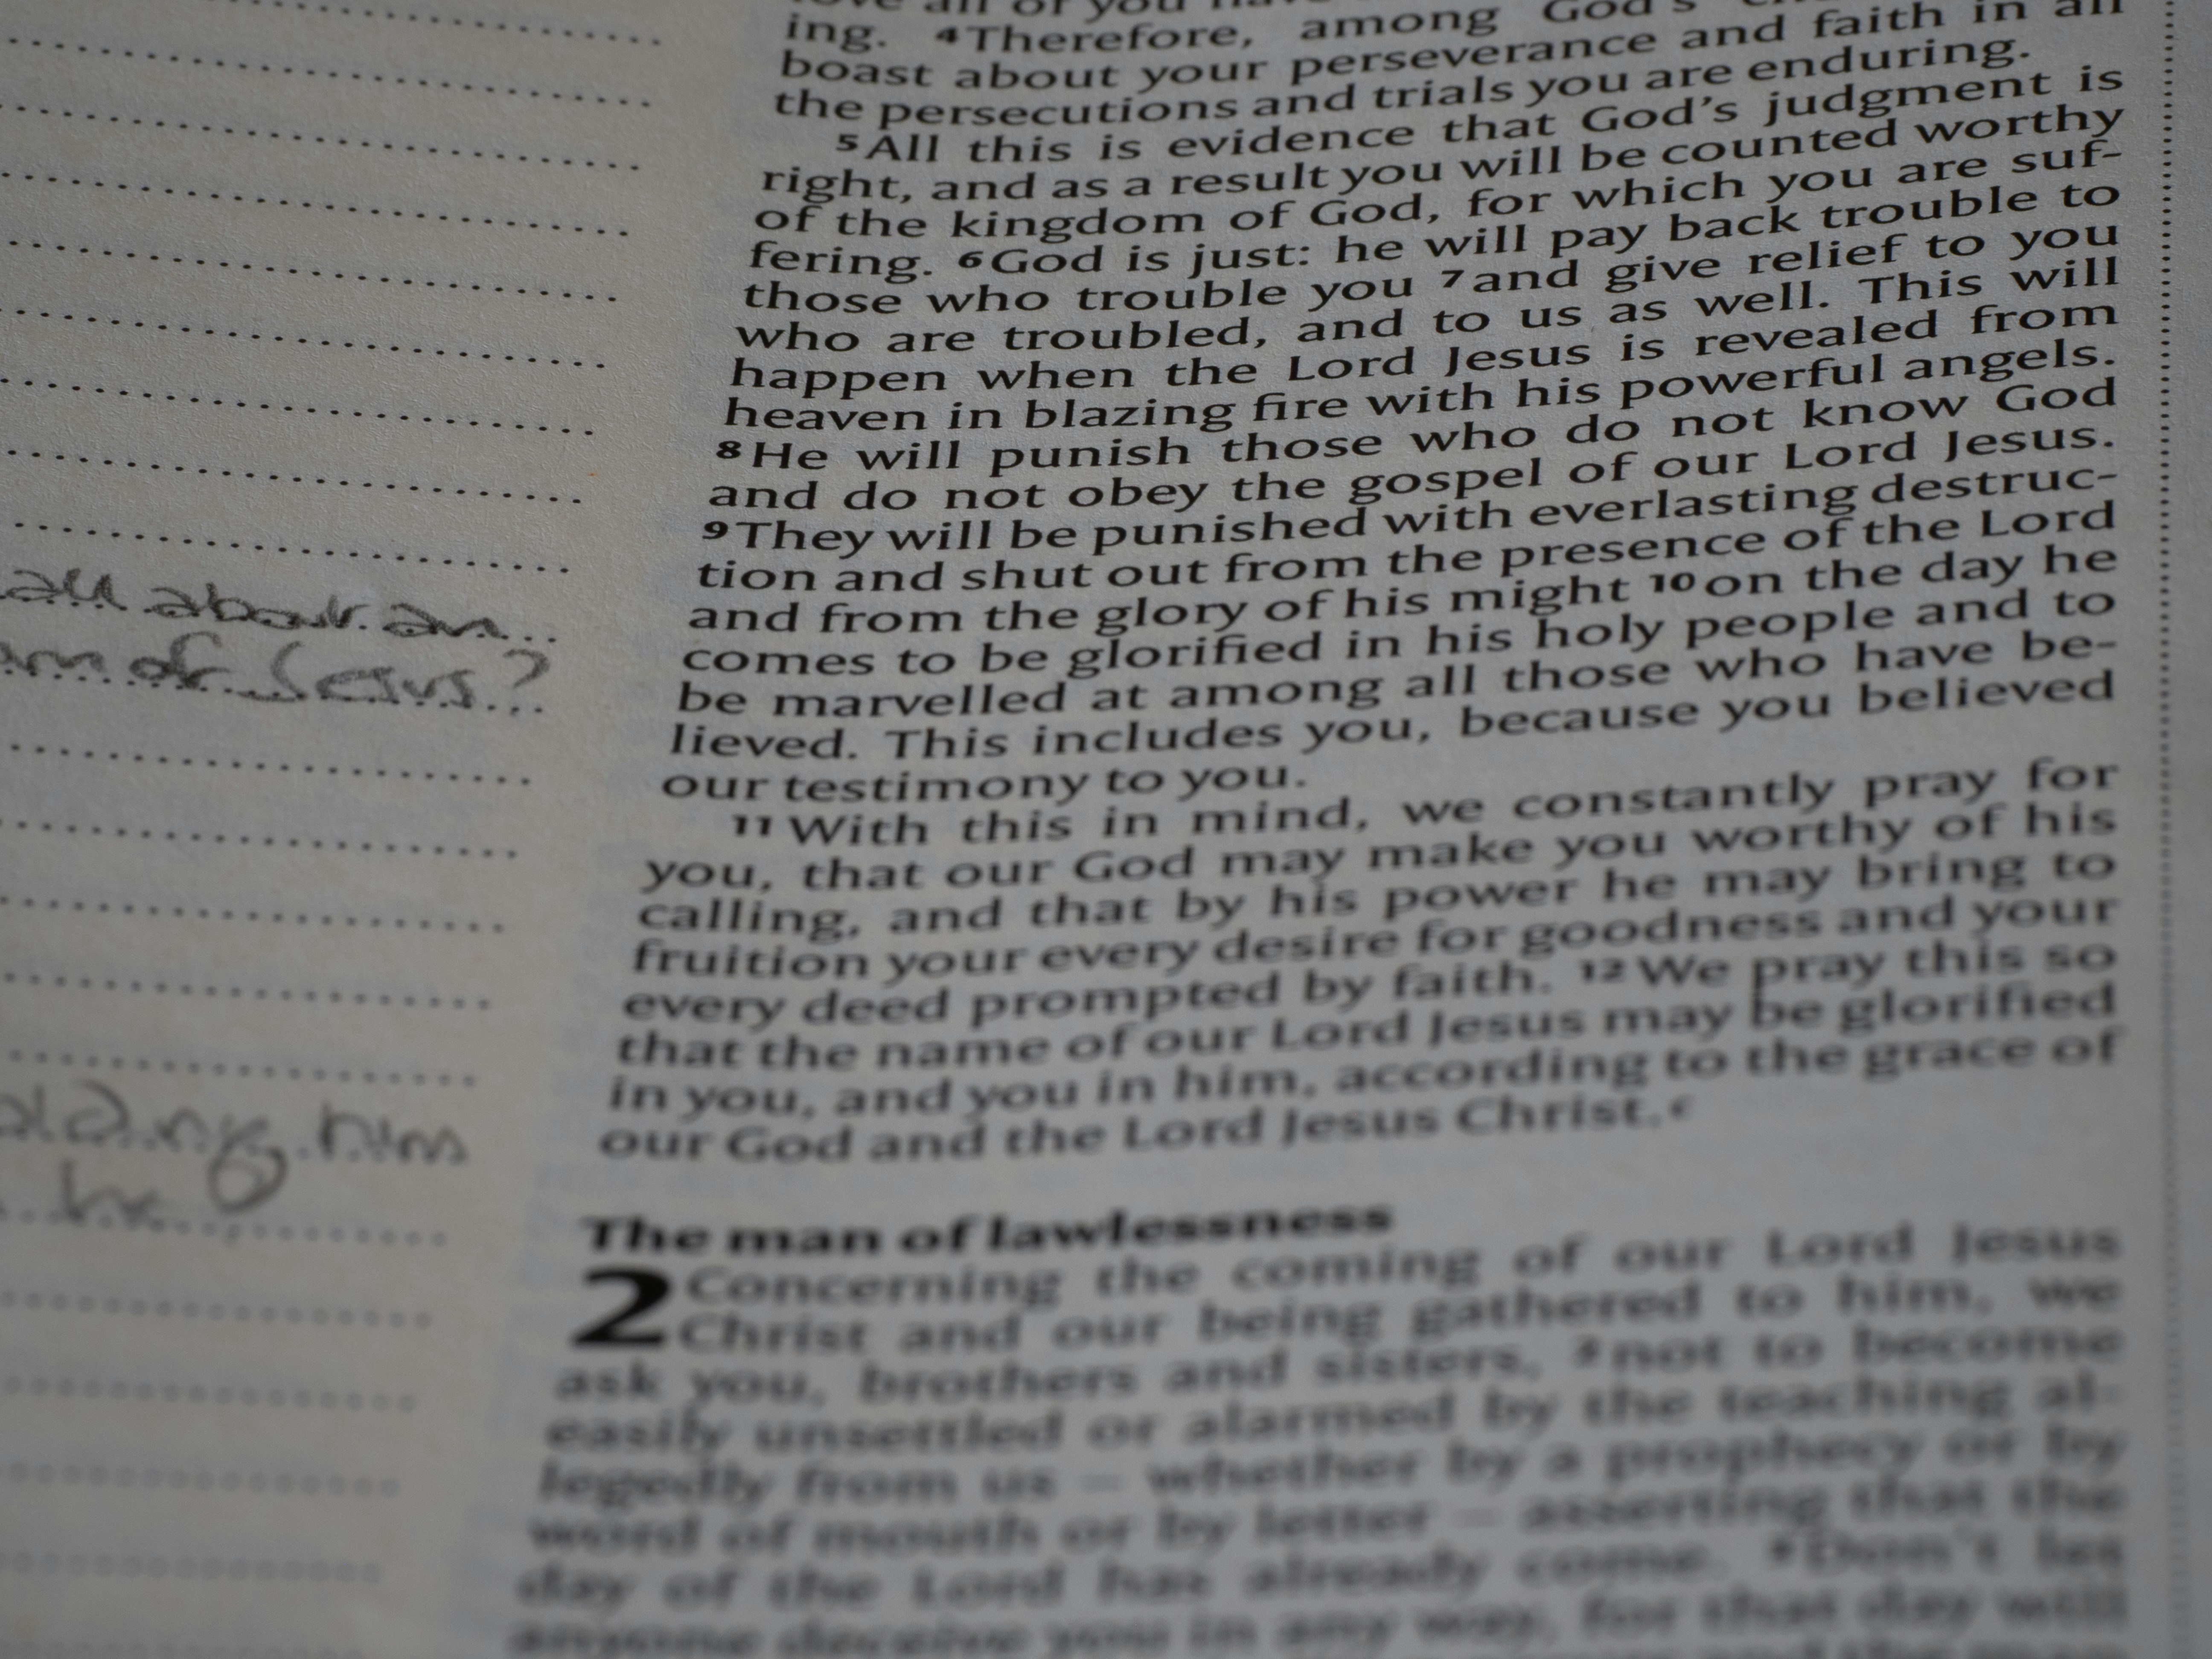 all about an
of Jesus?
him
he
ing. 4Therefore, among God's
boast about your perseverance and faith in all
the persecutions and trials you are enduring.
5All this is evidence that God's judgment is
right, and as a result you will be counted worthy
of the kingdom of God, for which you are suf-
fering. 6God is just: he will pay back trouble to
those who trouble you 7and give relief to you
who are troubled, and to us as well. This will
happen when the Lord Jesus is revealed from
heaven in blazing fire with his powerful angels.
8He will punish those who do not know God
and do not obey the gospel of our Lord Jesus.
9They will be punished with everlasting destruc-
tion and shut out from the presence of the Lord
and from the glory of his might 10on the day he
comes to be glorified in his holy people and to
be marvelled at among all those who have be-
lieved. This includes you, because you believed
our testimony to you.
11With this in mind, we constantly pray for
you, that our God may make you worthy of his
calling, and that by his power he may bring to
fruition your every desire for goodness and your
every deed prompted by faith. 12We pray this so
that the name of our Lord Jesus may be glorified
in you, and you in him, according to the grace of
our God and the Lord Jesus Christ.c
The man of lawlessness
2 Concerning the coming of our Lord Jesus
Christ and our being gathered to him, we
ask you, brothers and sisters, 2not to become
easily unsettled or alarmed by the teaching al-
legedly from us – whether by a prophecy or by
word of mouth or by letter – asserting that the
day of the Lord has already come. 3Don't let
anyone deceive you in any way, for that day will